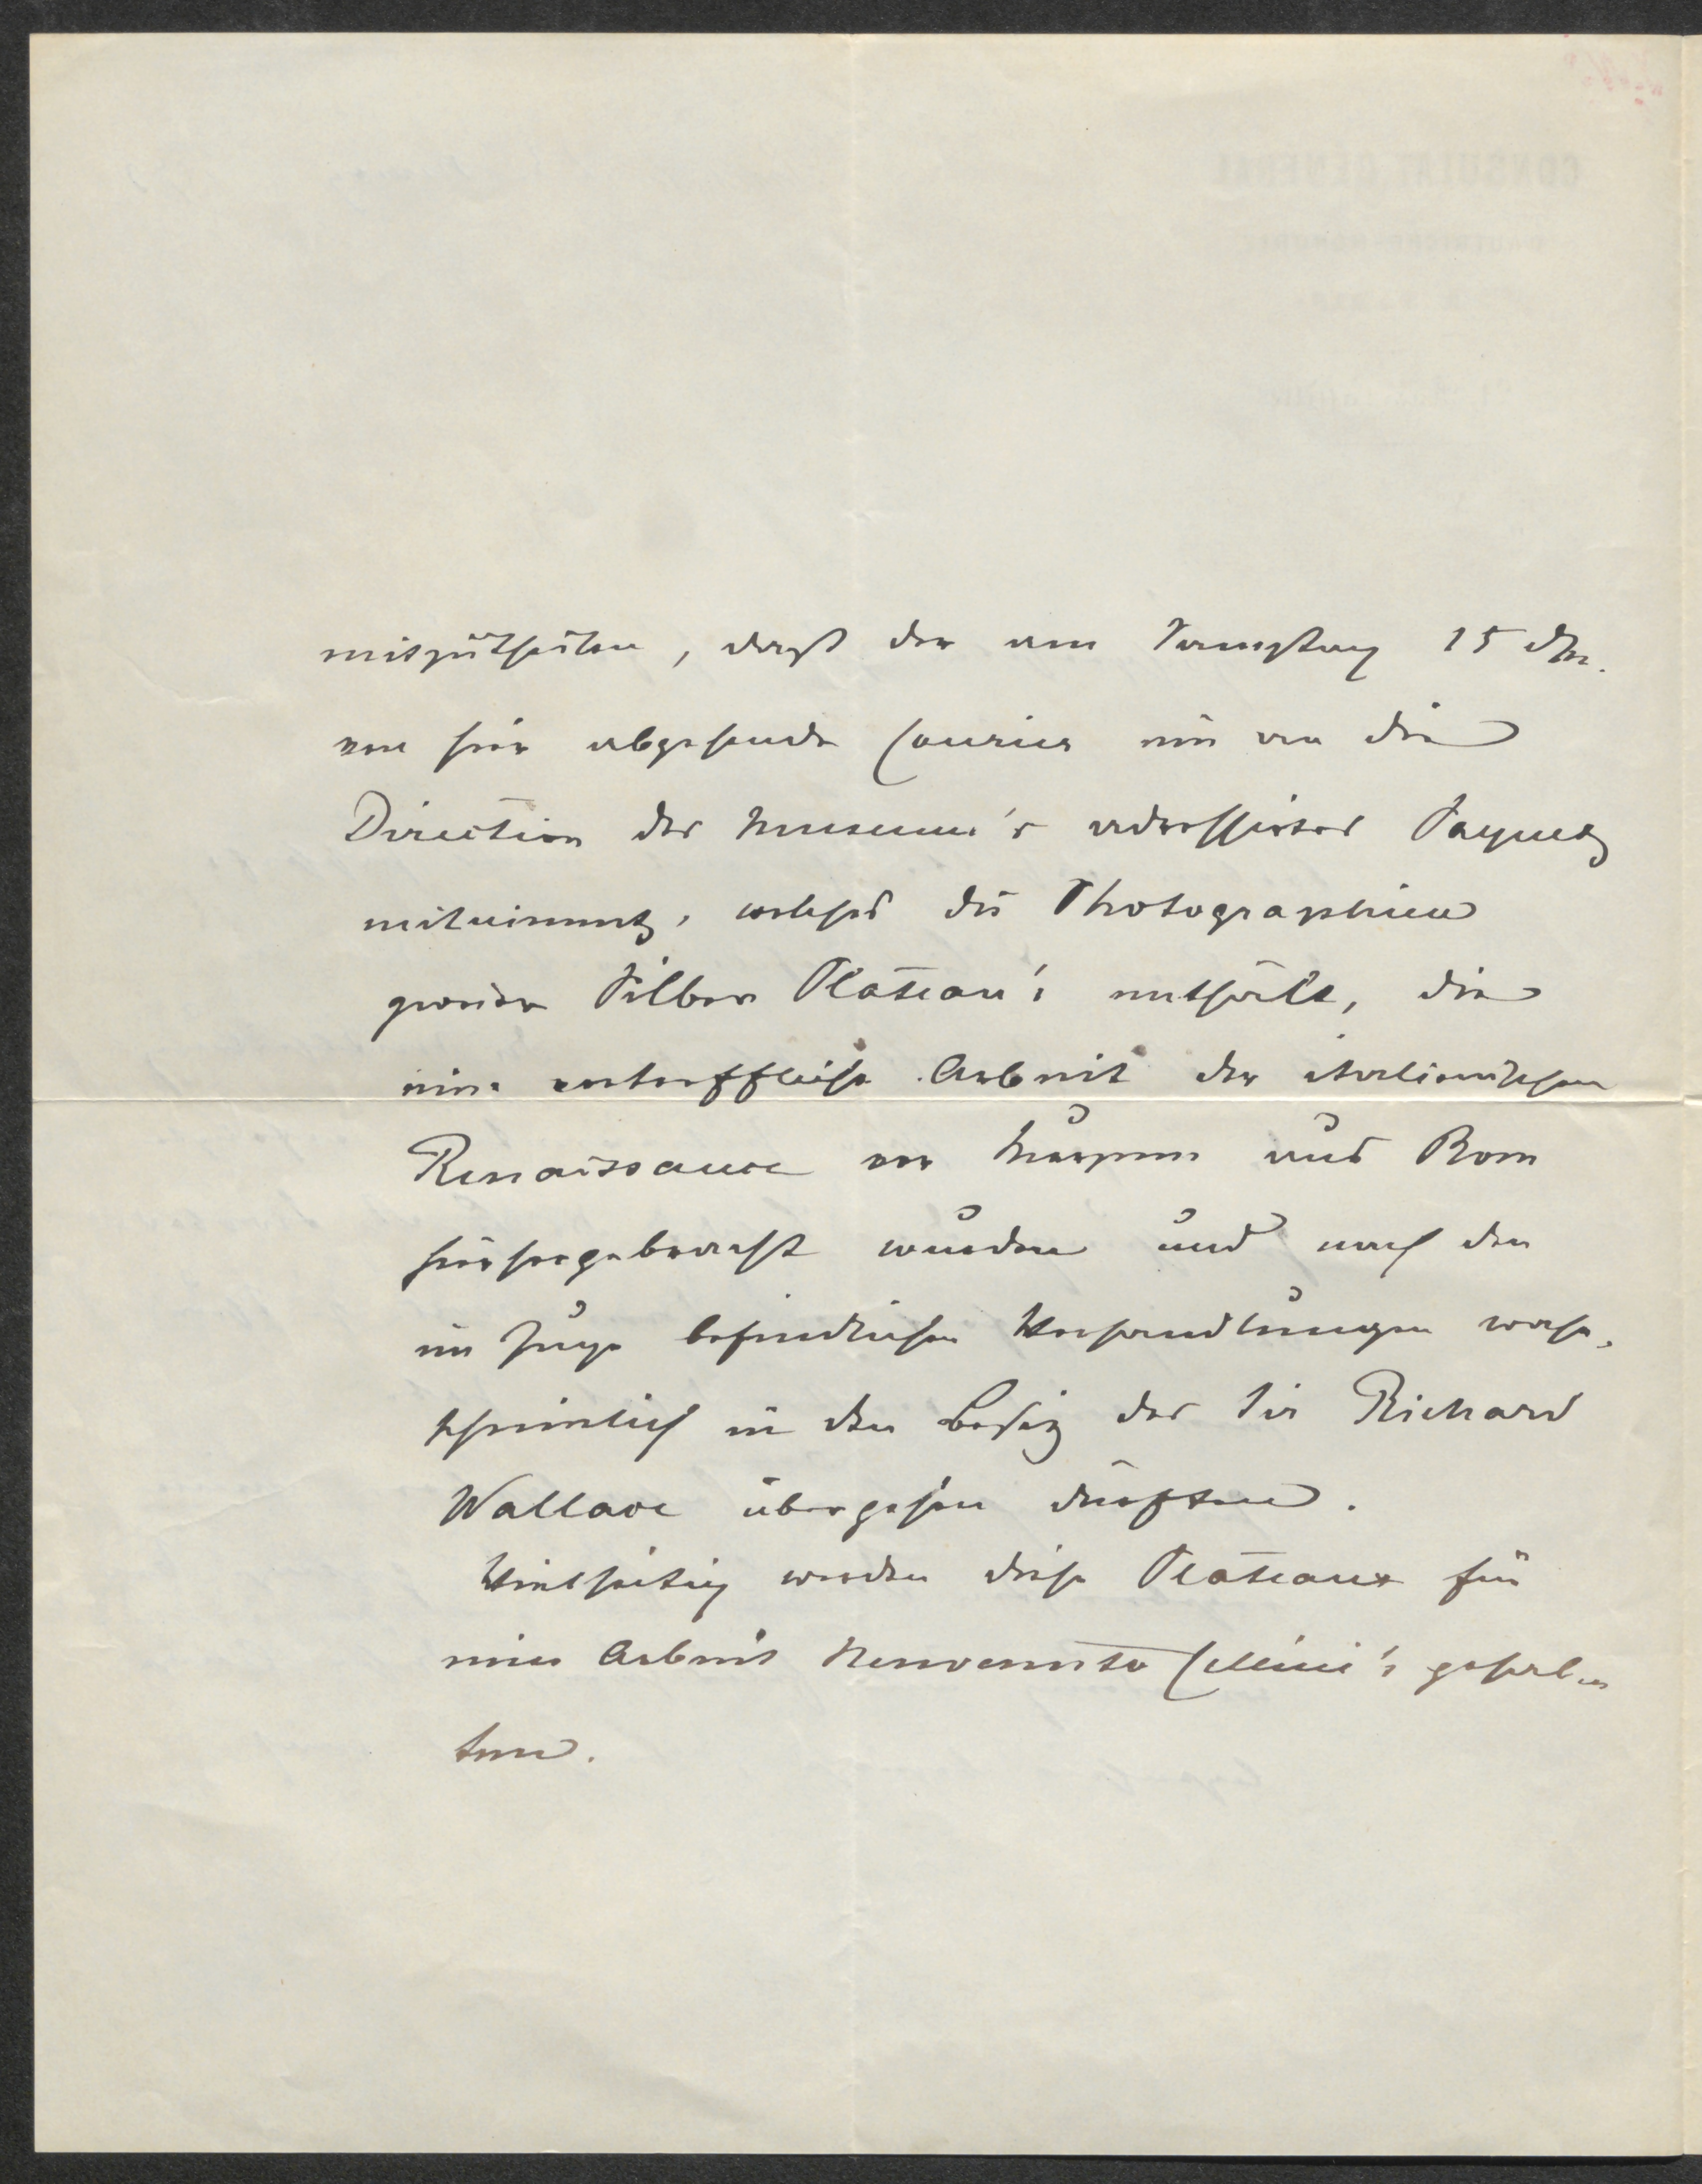 mitzutheilen, daß der am Samstag 15 dM.
von hier abgehende Courier ein an die
Direction des Museum's adressirtes Paquet
mitnimmt, welches die Photographien
zweier Silber Plateau's enthält, die
eine vortreffliche Arbeit der italienischen
Renaissance vor Kurzem aus Rom
hierhergebracht wurden und nach den
im Zuge befindlichen Verhandlungen wahr-
scheinlich in den Besitz des Sir Richard
Wallace übergehen dürften.
Vielseitig werden diese Plateaux für
eine Arbeit Benvenuto Cellini's gehal-
ten.